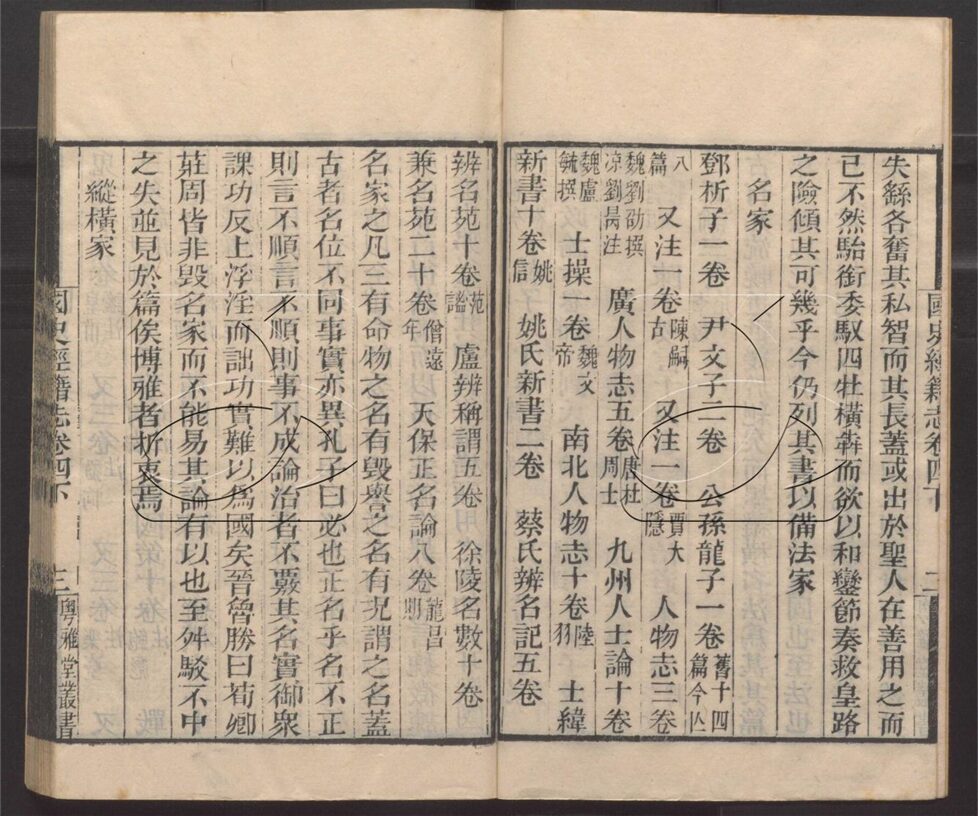 失繇各奮其私智而其長蓋或出於聖人在善用之而
已不然駘銜委馭四牡橫犇而欲以和鑾節奏救皇路
之險傾其可幾乎今仍列其書以備法家
名家
鄧析子一卷 尹文子二卷 公孫龍子一卷舊十四篇今亾
八篇 又注一卷陳嗣古 又注一卷賈大隱 人物志三卷
魏劉劭撰凉劉昺注 廣人物志五卷唐杜周士 九州人士論十卷
魏盧毓撰 士操一卷魏文帝 南北人物志十卷陸羽 士緯
新書十卷姚信 姚氏新書二卷 蔡氏辨名記五卷
國史經籍志卷四下 二
辨名苑十卷范謐 盧辨稱謂五卷 徐陵名數十卷
兼名苑二十卷僧遠年 天保正名論八卷龍昌期
名家之凡三有命物之名有毀譽之名有況謂之名蓋
古者名位不同事實亦異孔子曰必也正名乎名不正
則言不順言不順則事不成論治者不覈其名實御衆
課功反上浮淫而詘功實難以爲國矣晉魯勝曰荀卿
莊周皆非毀名家而不能易其論有以也至舛駁不中
之失並見於篇俟博雅者折衷焉
縱橫家
國史經籍志卷四下 三 粵雅堂叢書